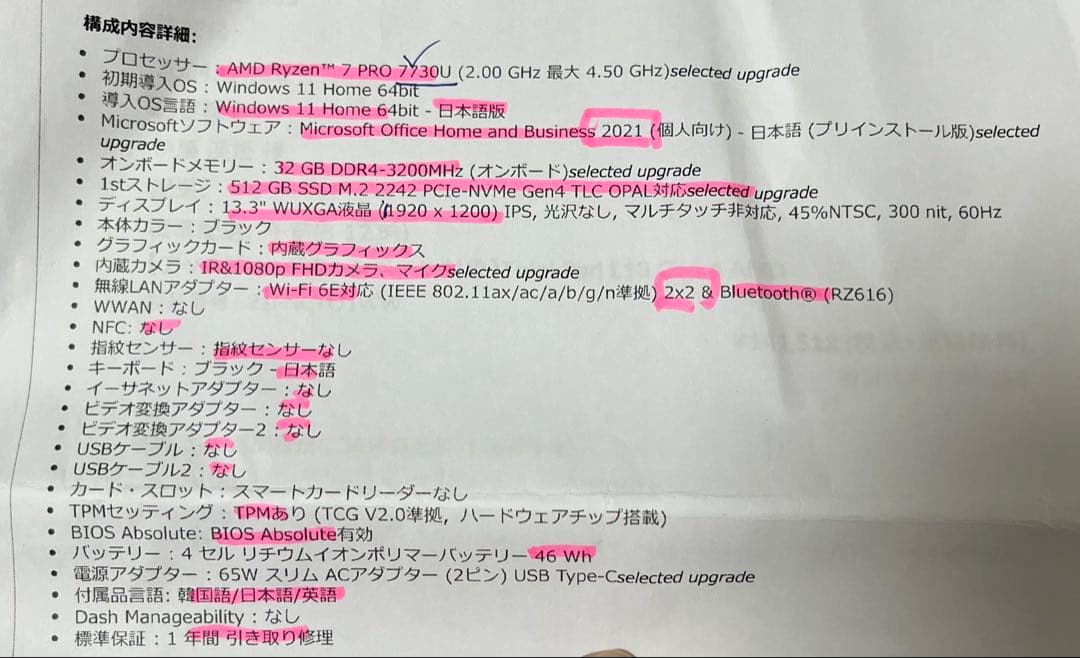 構成内容詳細:
• プロセッサー : AMD Ryzen™ 7 PRO 7730U (2.00 GHz 最大 4.50 GHz)selected upgrade
• 初期導入OS : Windows 11 Home 64bit
• 導入OS言語 : Windows 11 Home 64bit - 日本語版
• Microsoftソフトウェア : Microsoft Office Home and Business 2021 (個人向け) - 日本語 (プリインストール版)selected
upgrade
• オンボードメモリー : 32 GB DDR4-3200MHz (オンボード)selected upgrade
• 1stストレージ : 512 GB SSD M.2 2242 PCIe-NVMe Gen4 TLC OPAL対応selected upgrade
• ディスプレイ : 13.3" WUXGA液晶 (1920 x 1200) IPS, 光沢なし, マルチタッチ非対応, 45%NTSC, 300 nit, 60Hz
• 本体カラー : ブラック
• グラフィックカード : 内蔵グラフィックス
• 内蔵カメラ : IR&1080p FHDカメラ、マイクselected upgrade
• 無線LANアダプター : Wi-Fi 6E対応 (IEEE 802.11ax/ac/a/b/g/n準拠) 2x2 & Bluetooth® (RZ616)
• WWAN : なし
• NFC: なし
• 指紋センサー : 指紋センサーなし
• キーボード : ブラック - 日本語
• イーサネットアダプター : なし
• ビデオ変換アダプター : なし
• ビデオ変換アダプター2 : なし
• USBケーブル : なし
• USBケーブル2 : なし
• カード・スロット : スマートカードリーダーなし
• TPMセッティング : TPMあり (TCG V2.0準拠, ハードウェアチップ搭載)
• BIOS Absolute: BIOS Absolute有効
• バッテリー : 4 セル リチウムイオンポリマーバッテリー 46 Wh
• 電源アダプター : 65W スリム ACアダプター (2ピン) USB Type-Cselected upgrade
• 付属品言語: 韓国語/日本語/英語
• Dash Manageability : なし
• 標準保証 : 1 年間 引き取り修理